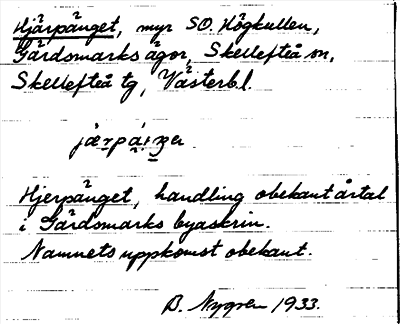 Hjärpänget, myr SO. Högkullen,
Gärdsmarks ägor, Skellefteå sn,
Skellefteå tg, Västerbl.
Hjerpänget, handling obekant årtal
i Gärdsmarks byaskrin.
Namnets uppkomst obekant.
B. Nygren 1933.